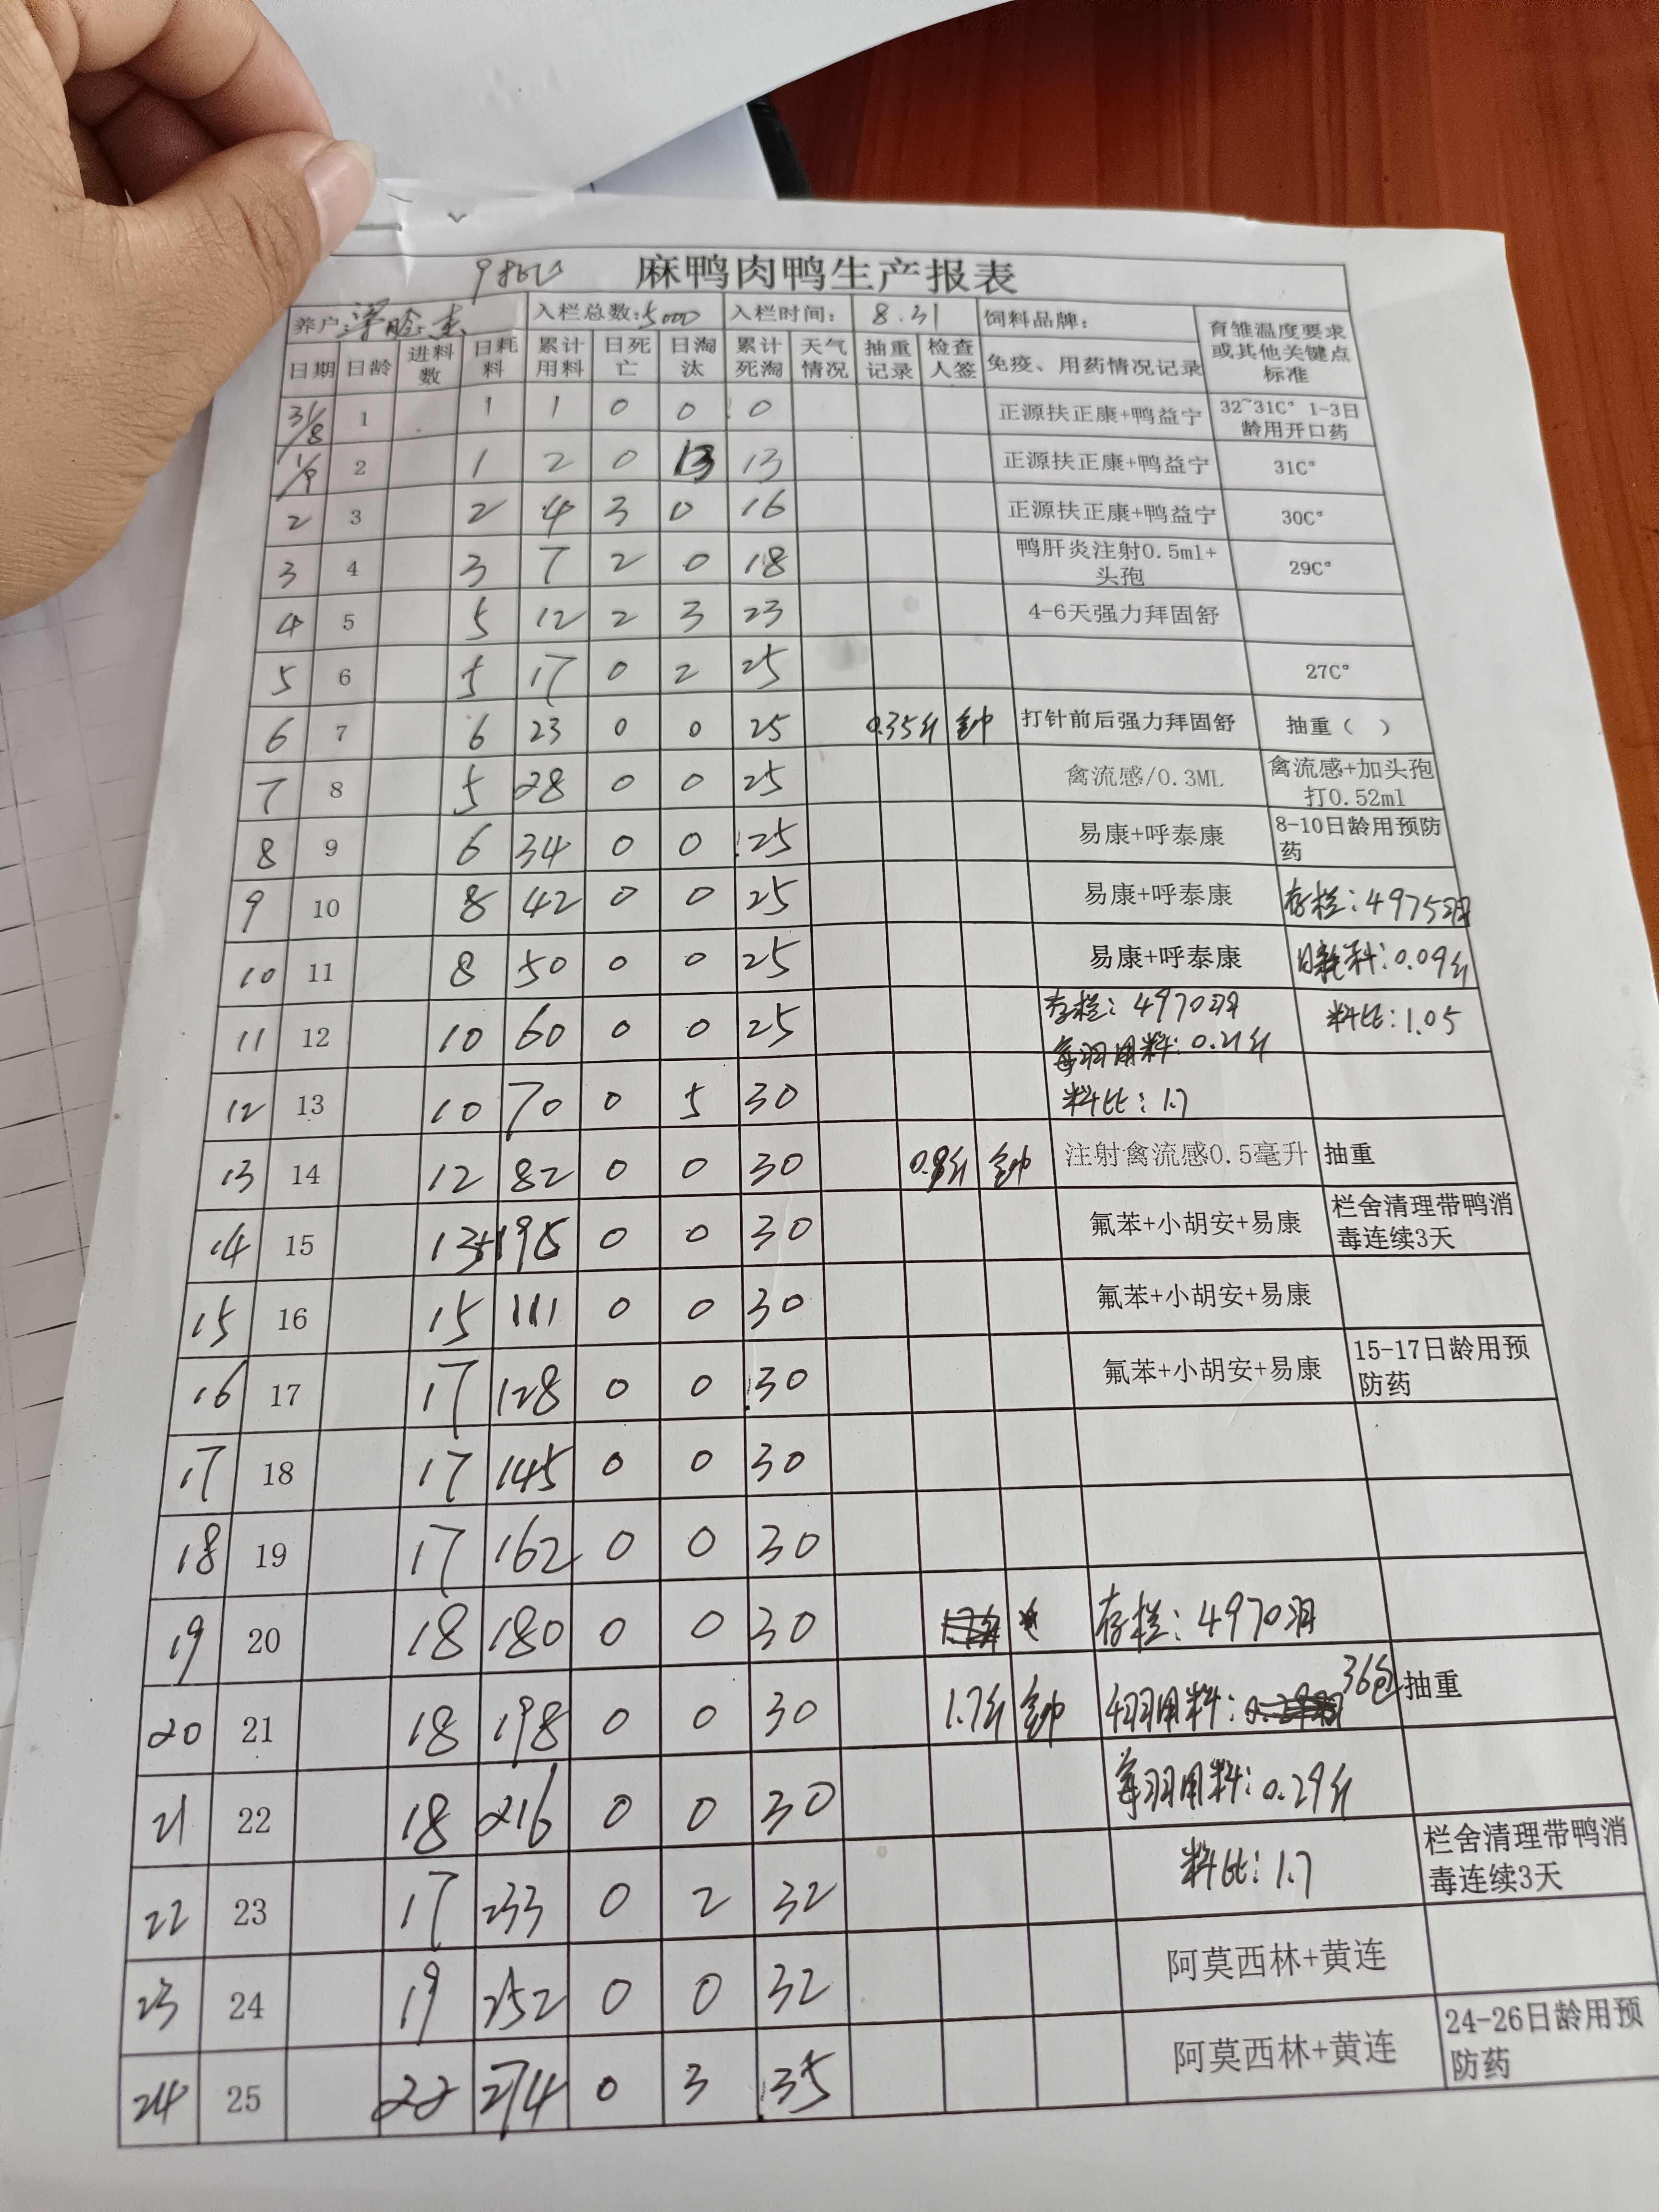 麻鸭肉鸭生产报表
养户: 入栏总数:5000 入栏时间: 8.31 饲料品牌: 育雏温度要求或其他关键点标准
日期 日龄 进料数 日耗料 累计用料 日死亡 日淘汰 累计死淘 天气情况 抽重记录 检查人签 免疫、用药情况记录
31/8 1 1 1 0 0 0 正源扶正康+鸭益宁 32~31C° 1-3日龄用开口药
1/9 2 1 2 0 13 13 正源扶正康+鸭益宁 31C°
2 3 2 4 3 0 16 正源扶正康+鸭益宁 30C°
3 4 3 7 2 0 18 鸭肝炎注射0.5ml+头孢 29C°
4 5 5 12 2 3 23 4-6天强力拜固舒
5 6 5 17 0 2 25 27C°
6 7 6 23 0 0 25 0.35斤 打针前后强力拜固舒 抽重( )
7 8 5 28 0 0 25 禽流感/0.3ML 禽流感+加头孢打0.52ml
8 9 6 34 0 0 25 易康+呼泰康 8-10日龄用预防药
9 10 8 42 0 0 25 易康+呼泰康 存栏:4975羽
10 11 8 50 0 0 25 易康+呼泰康 日耗料:0.09斤
11 12 10 60 0 0 25 存栏:4970羽 每羽用料:0.21斤 料比:1.05
12 13 10 70 0 5 30 料比:1.7
13 14 12 82 0 0 30 注射禽流感0.5毫升 抽重
14 15 0 0 30 氟苯+小胡安+易康 栏舍清理带鸭消毒连续3天
15 16 15 111 0 0 30 氟苯+小胡安+易康
16 17 17 128 0 0 30 氟苯+小胡安+易康 15-17日龄用预防药
17 18 17 145 0 0 30
18 19 17 162 0 0 30
19 20 18 180 0 0 30 存栏:4970羽
20 21 18 198 0 0 30 1.7斤 用料: 36包 抽重
21 22 18 216 0 0 30 每羽用料:0.29斤
22 23 17 233 0 2 32 料比:1.7 栏舍清理带鸭消毒连续3天
23 24 19 252 0 0 32 阿莫西林+黄连
24 25 22 274 0 3 35 阿莫西林+黄连 24-26日龄用预防药